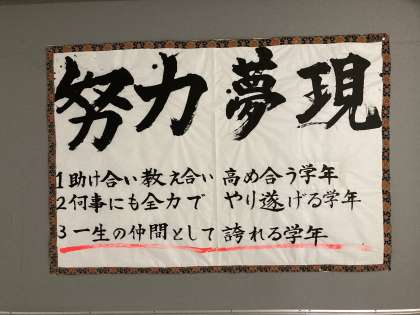 努力夢現
1助け合い教え合い 高め合う学年
2何事にも全力で やり遂げる学年
3一生の仲間として誇れる学年